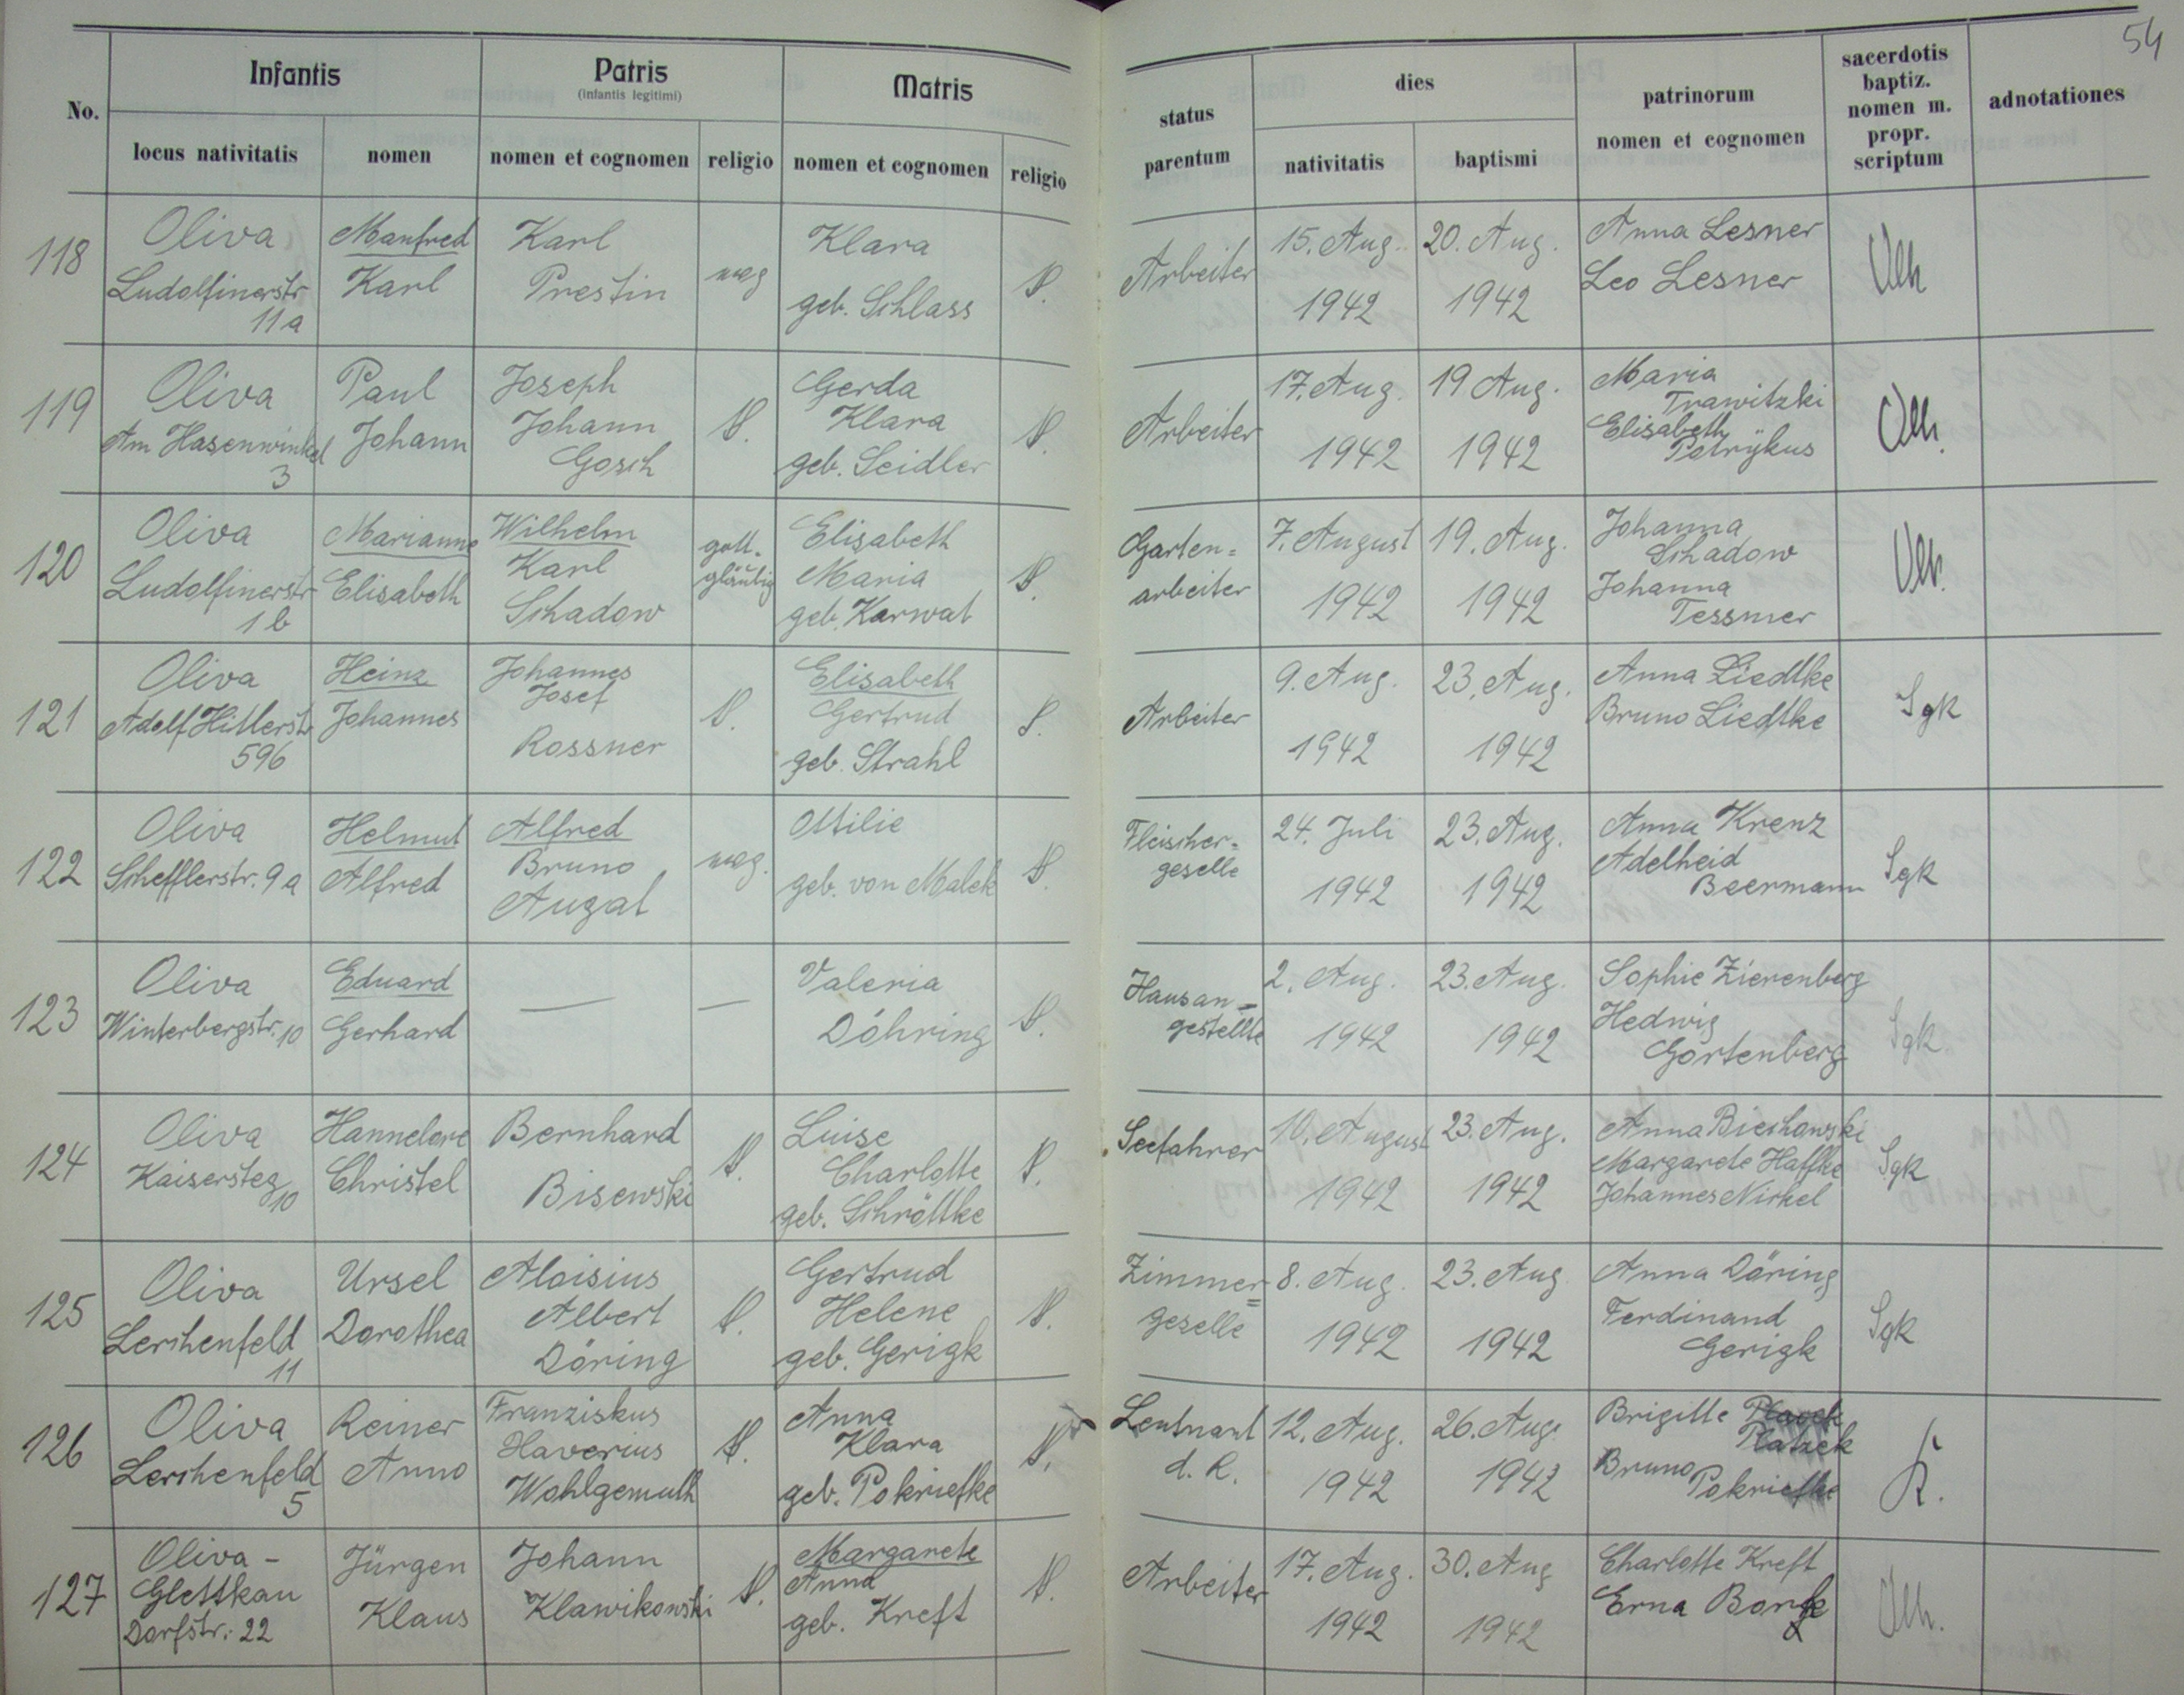 54
No.
Infantis
Patris
(infantis legitimi)
Matris
locus nativitatis
nomen
nomen et cognomen
religio
nomen et cognomen
religio
status
parentum
dies
nativitatis
baptismi
patrinorum
nomen et cognomen
sacerdotis
baptiz.
nomen m.
propr.
scriptum
adnotationes
118
Oliva
Ludolfinerstr
11a
Manfred
Karl
Karl
Prestin
Klara
geb. Schlass
Arbeiter
15. Aug.
1942
20. Aug.
1942
Anna Lesner
Leo Lesner
119
Oliva
Am Hasenwinkel
3
Paul
Johann
Joseph
Johann
Gosch
Gerda
Klara
geb. Seidler
Arbeiter
17. Aug.
1942
19 Aug.
1942
Maria
Trawitzki
Elisabeth
Petrÿkus
120
Oliva
Ludolfinerstr
1b
Marianne
Elisabeth
Wilhelm
Karl
Schadow
gott-
gläubig
Elisabeth
Maria
geb. Karwat
Garten=
arbeiter
7. August
1942
19. Aug.
1942
Johanna
Schadow
Johanna
Tessmer
121
Oliva
Adolf Hitlerstr
596
Heinz
Johannes
Johannes
Josef
Rossner
Elisabeth
Gertrud
geb. Strahl
Arbeiter
9. Aug.
1942
23. Aug.
1942
Anna Liedtke
Bruno Liedtke
Sgk
122
Oliva
Schefflerstr. 9a
Helmut
Alfred
Alfred
Bruno
Augat
Ottilie
geb. von Malek
Fleischer=
geselle
24. Juli
1942
23. Aug.
1942
Anna Krenz
Adelheid
Beermann
Sgk
123
Oliva
Winterbergstr. 10
Eduard
Gerhard
—
—
Valeria
Döhring
Hausan=
gestellte
2. Aug.
1942
23. Aug.
1942
Sophie Zierenberg
Hedwig
Gortenberg
Sgk
124
Oliva
Kaisersteg
10
Hannelore
Christel
Bernhard
Bisewski
Luise
Charlotte
geb. Schröttke
Seefahrer
10. August
1942
23. Aug.
1942
Anna Bieschowski
Margarete Haffke
Johannes Nickel
Sgk
125
Oliva
Lerchenfeld
11
Ursel
Dorothea
Aloisius
Albert
Döring
Gertrud
Helene
geb. Gerigk
Zimmer=
geselle
8. Aug.
1942
23. Aug
1942
Anna Döring
Ferdinand
Gerigk
Sgk
126
Oliva
Lerchenfeld
5
Reiner
Anno
Franziskus
Xaverius
Wohlgemuth
Anna
Klara
geb. Pokriefke
Leutnant
d. R.
12. Aug.
1942
26. Aug.
1942
Brigitte
Platzek
Bruno
Pokriefke
K.
127
Oliva -
Glettkau
Dorfstr. 22
Jürgen
Klaus
Johann
Klawikowski
Margarete
Anna
geb. Kreft
Arbeiter
17. Aug.
1942
30. Aug
1942
Charlotte Kreft
Erna